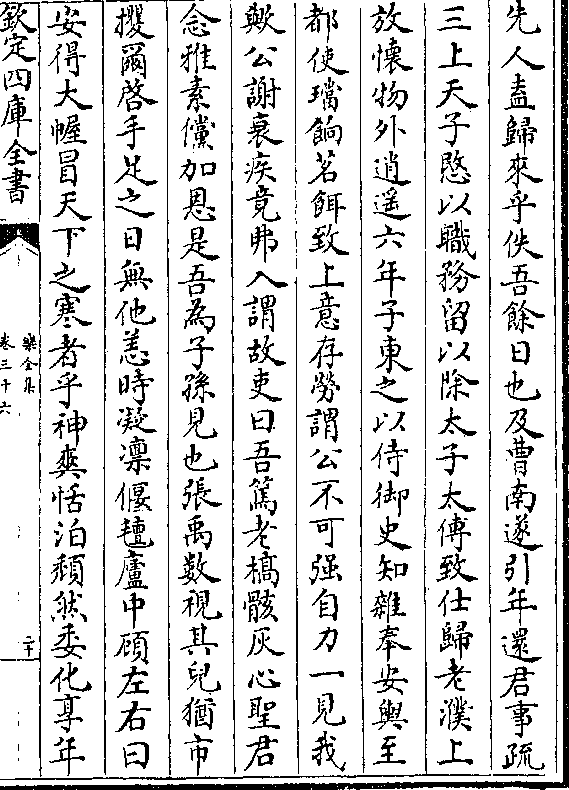 先人盍歸來乎佚吾餘日也及曹南遂引年還君事疏
三上天子愍以職務留以除太子太傅致仕歸老濮上
放懷物外逍遥六年子東之以侍御史知雜奉安輿至
都使璫餉茗餌致上意存勞謂公不可强自力一見我
歟公謝衰疾竟弗入謂故吏曰吾篤老槁骸灰心聖君
念雅素儻加恩是吾為子孫見也張禹數視其兒猶市
攫爾啓手足之日無他恙時凝凛偃氊廬中顧左右曰
安得大幄冒天下之寒者乎神爽恬泊頽然委化享年
欽定四庫全書
樂全集
卷三十六
二十